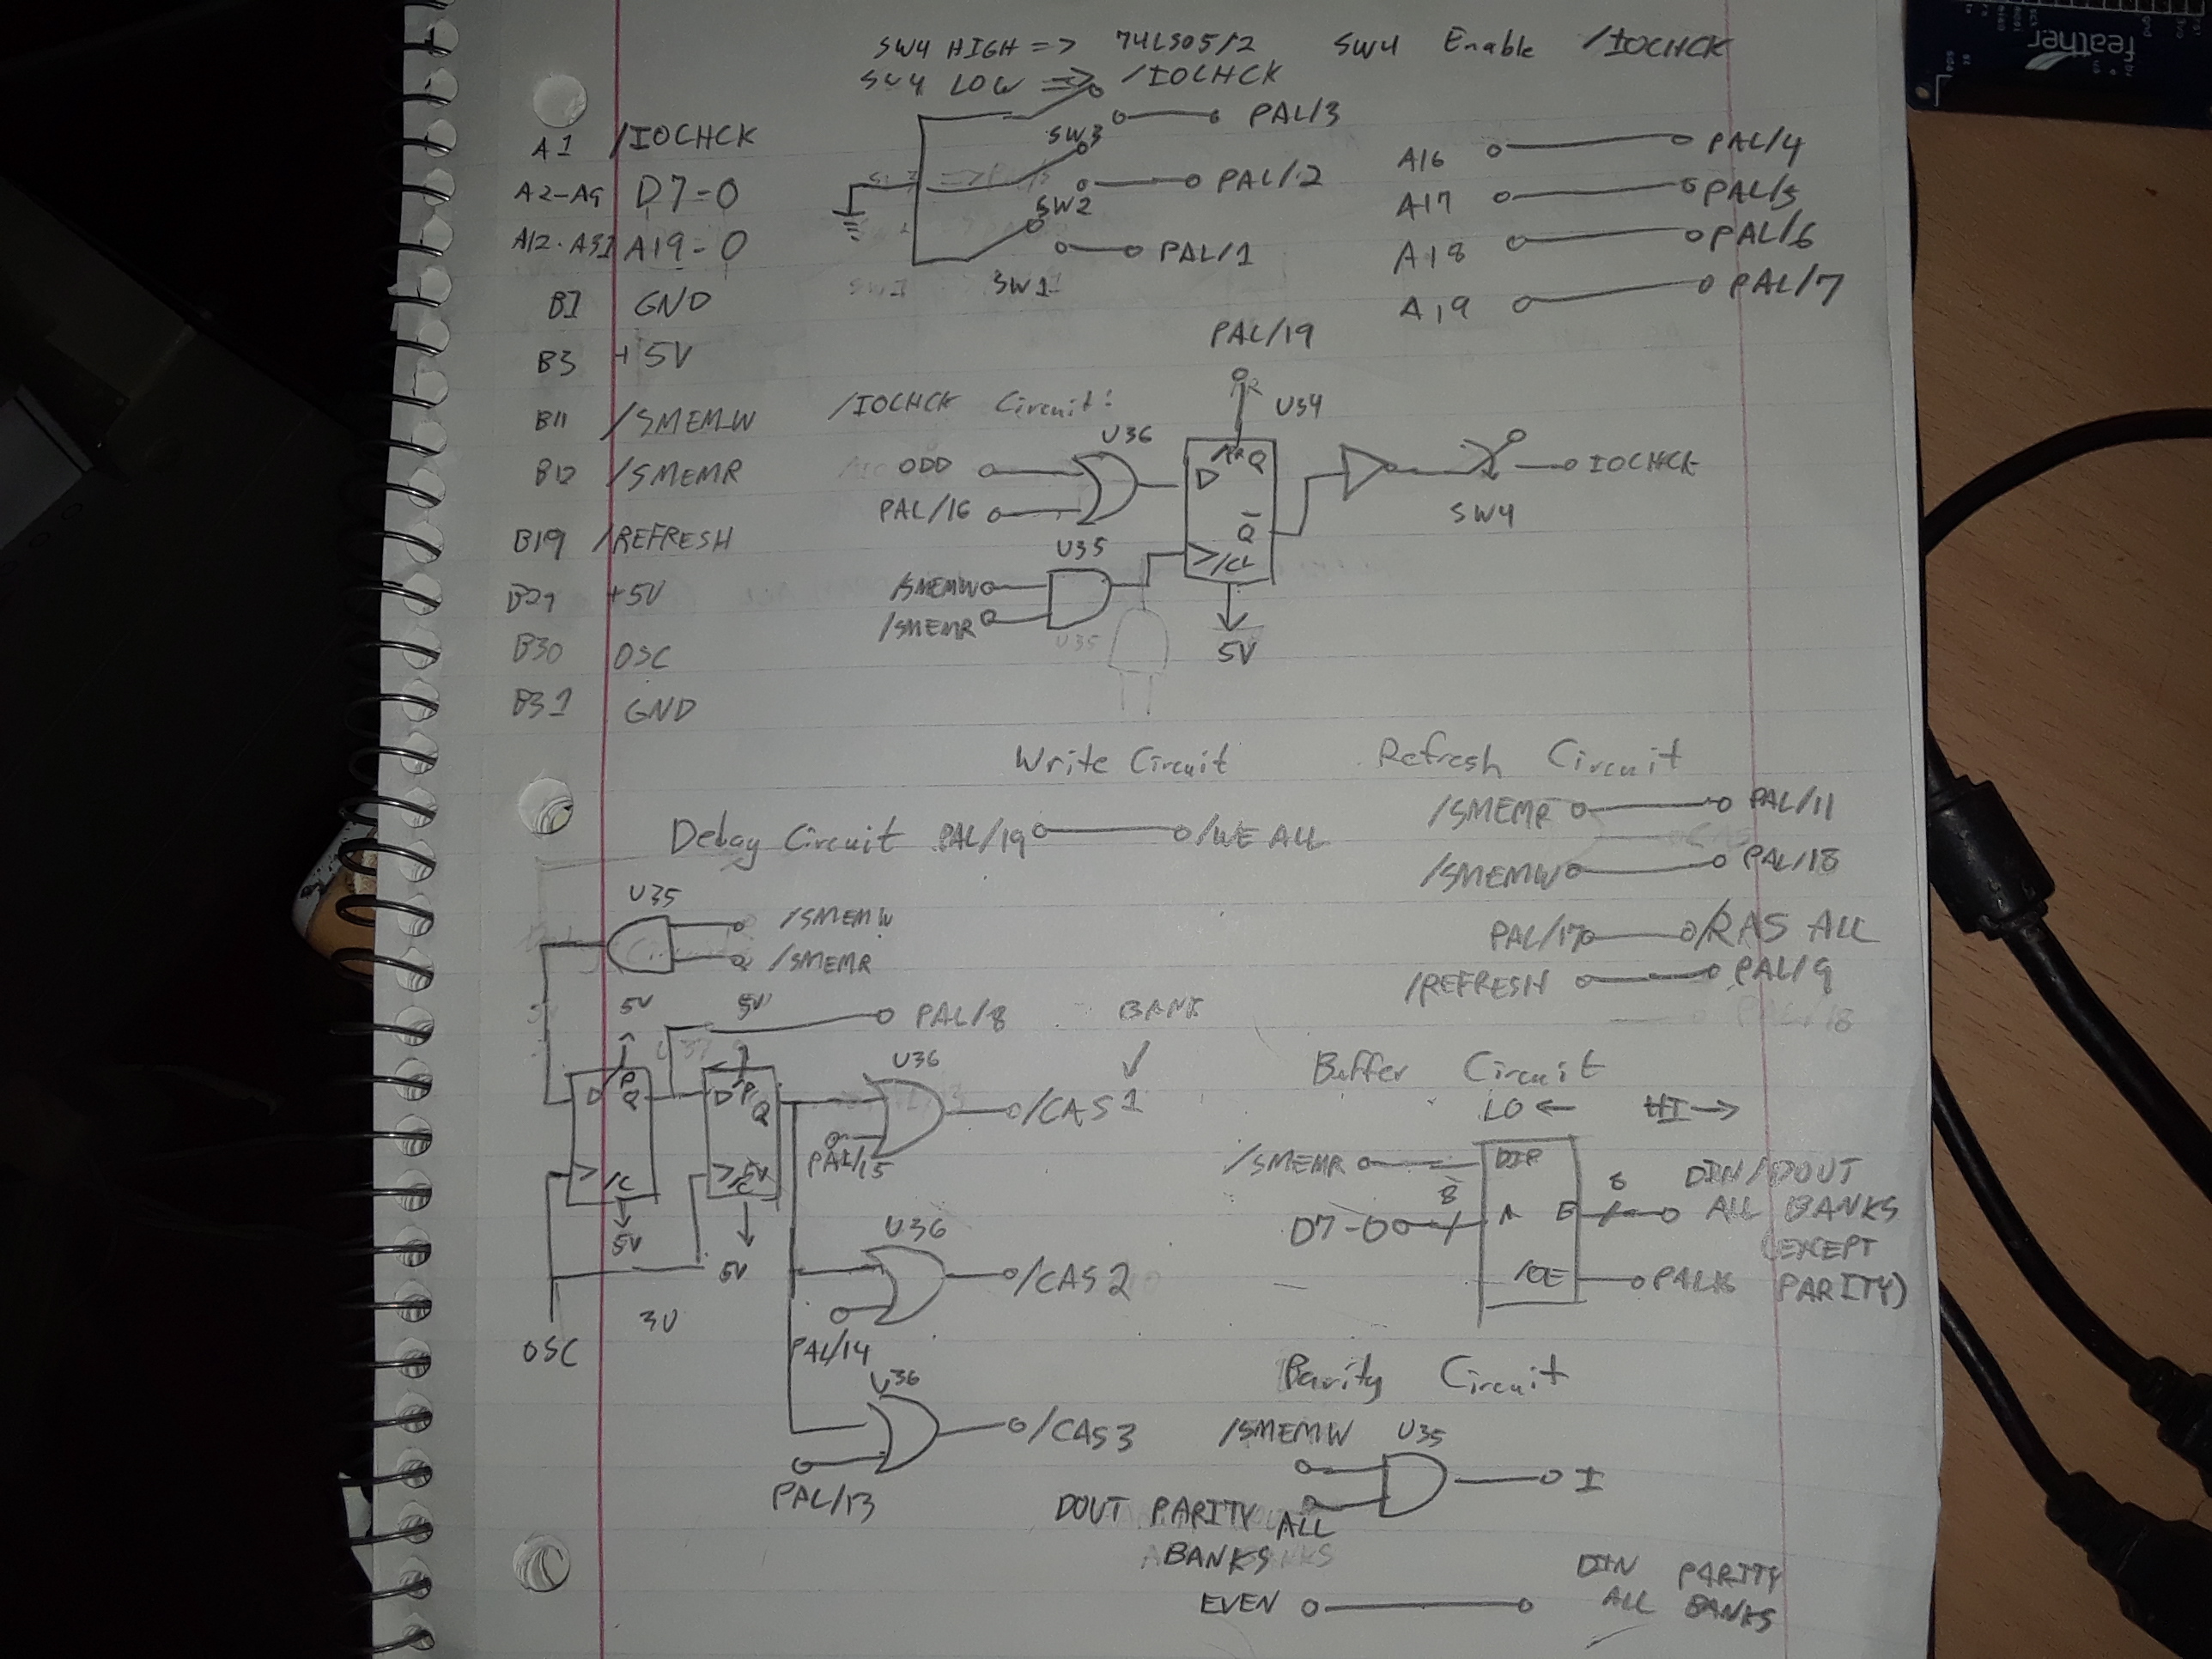 SW4 HIGH => 74LS05/2 SW4 Enable /IOCHCK
SW4 LOW => /IOCHCK
feather
A1 /IOCHCK
A2-A9 D7-0
A12-A31 A19-0
B1 GND
B3 +5V
B11 /SMEMW
B12 /SMEMR
B19 /REFRESH
B29 +5V
B30 OSC
B31 GND
SW3 PAL/3
SW2 PAL/2
SW1 PAL/1
A16 PAL/4
A17 PAL/5
A18 PAL/6
A19 PAL/7
/IOCHCK Circuit:
PAL/19
U34
U36
ODD
PAL/16
D Q
Q
/CL
5V
U35
/SMEMW
/SMEMR
U35
SW4
IOCHCK
Write Circuit
PAL/19 /WE ALL
Refresh Circuit
/SMEMR PAL/11
/SMEMW PAL/18
PAL/17 /RAS ALL
/REFRESH PAL/9
PAL/18
Delay Circuit
U35
/SMEMW
/SMEMR
5V 5V
PAL/8
U37
D P Q
/C
5V
D P Q
5V
/C
5V
OSC
3V
BANK
U36
PAL/15
/CAS1
U36
PAL/14
/CAS2
U36
PAL/13
/CAS3
Buffer Circuit
LO ← HI →
/SMEMR DIR
D7-0 8 A B 8
DIN/DOUT
ALL BANKS
(EXCEPT
PARITY)
/OE PAL16
Parity Circuit
/SMEMW U35
I
DOUT PARITY ALL
BANKS
EVEN
DIN PARITY
ALL BANKS